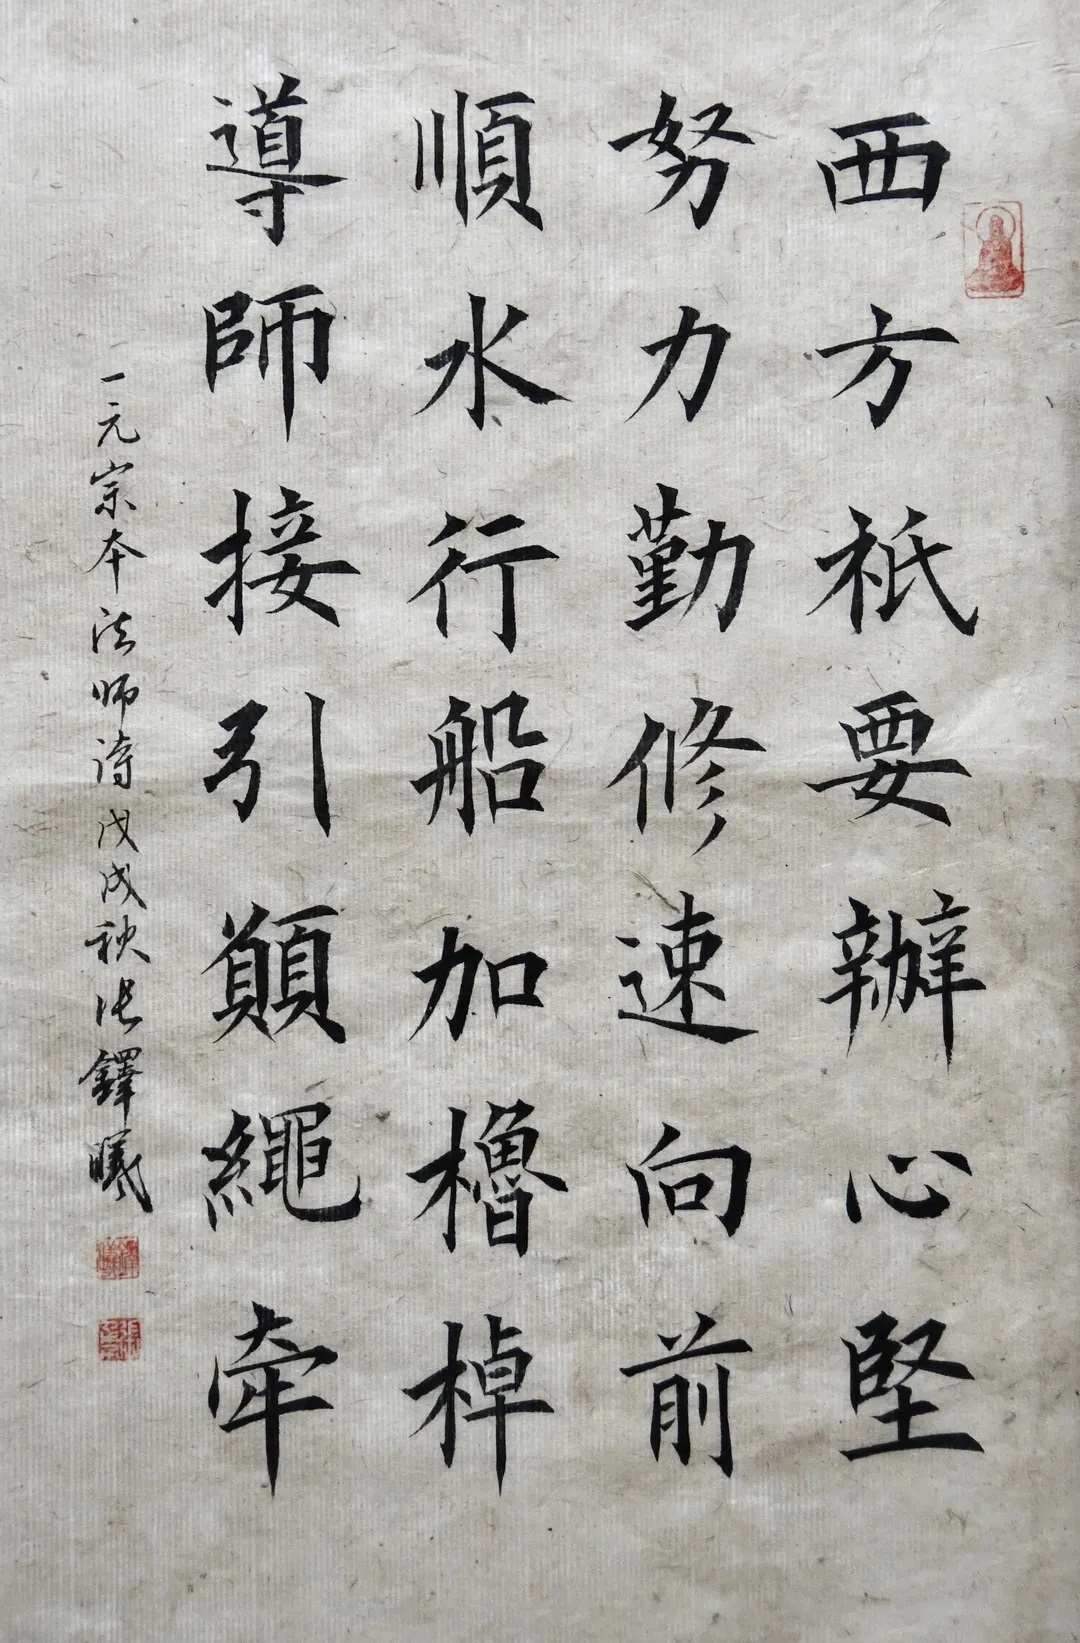 西方祇要辦心堅
努力勤修速向前
順水行船加櫓棹
導師接引願繩牽
一元宗本法师詩戊戌秋张鐸曦